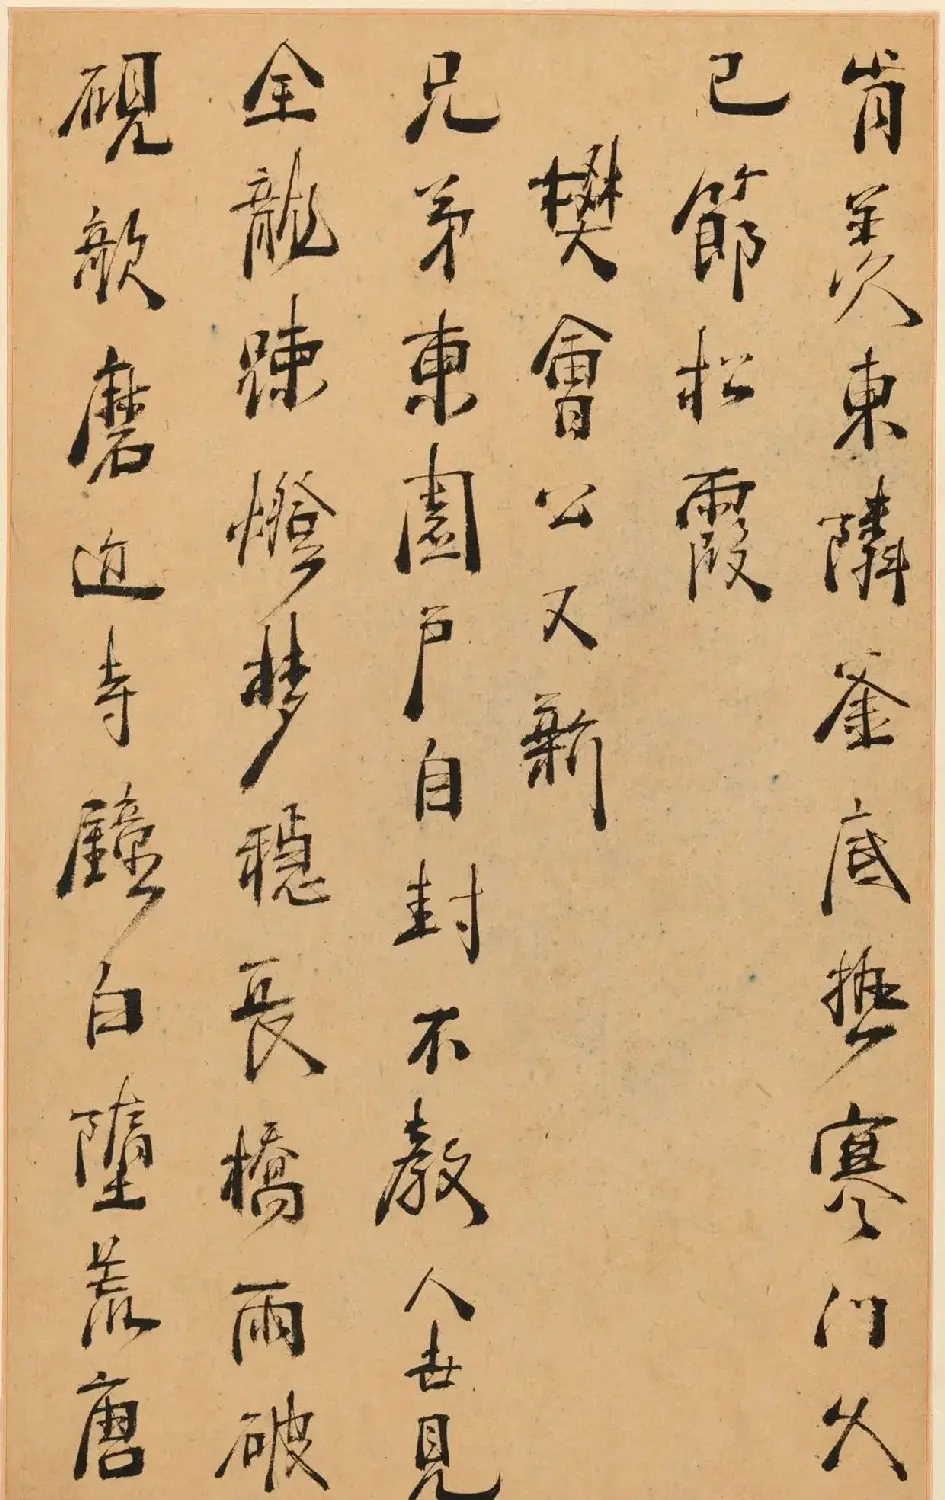 肯羡東隣釜底熱寒門久
已節松霞
樊會公又新
兄弟東園戶自封不教人世見
全龍踈燈夢穩長橋雨破
硯歌磨近寺鐘白墮荒唐